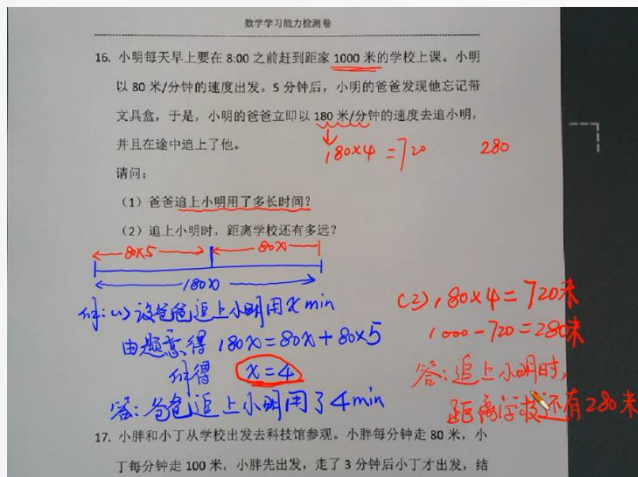 数学学习能力检测卷
16. 小明每天早上要在 8:00 之前赶到距家 1000 米的学校上课。小明
以 80 米/分钟的速度出发。5 分钟后，小明的爸爸发现他忘记带
文具盒，于是，小明的爸爸立即以 180 米/分钟的速度去追小明，
并且在途中追上了他。
180×4 = 720
280
请问：
（1）爸爸追上小明用了多长时间？
（2）追上小明时，距离学校还有多远？
80×5
80x
180x
解：(1) 设爸爸追上小明用 x min
由题意得 180x = 80x + 80×5
解得 x = 4
答：爸爸追上小明用了 4 min
(2) 180×4 = 720米
1000 - 720 = 280米
答：追上小明时，
距离学校还有 280 米
17. 小胖和小丁从学校出发去科技馆参观。小胖每分钟走 80 米，小
丁每分钟走 100 米，小胖先出发，走了 3 分钟后小丁才出发，结